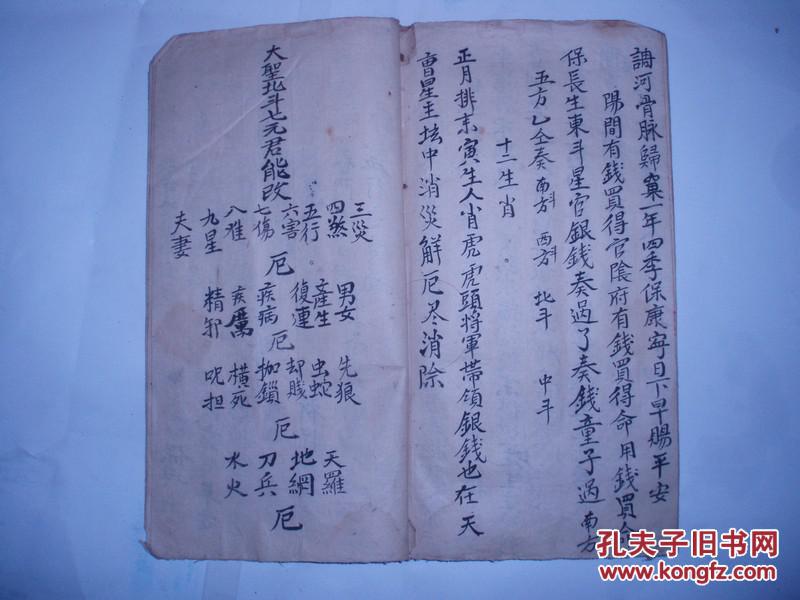 調河骨脉歸窠一年四季保康寧日下早賜平安
陽間有錢買得官陰府有錢買得命用錢買命
保長生東斗星官銀錢奏過了奏錢童子過南方
五方乙仝奏南方斗 西方斗 北斗 中斗
十二生肖
正月排來寅生人肖虎虎頭將軍帶領銀錢也在天
曹星主坛中消災解厄尽消除
大聖北斗七元君能改
三災
四煞
五行
六害
七傷
八难
九星
夫妻
厄
男女
產生
復連
疾病
疾厲
精邪
厄
先狼
虫蛇
却賎
枷鎖
橫死
呪担
厄
天羅
地網
刀兵
水火
厄
孔夫子旧书网
www.kongfz.com